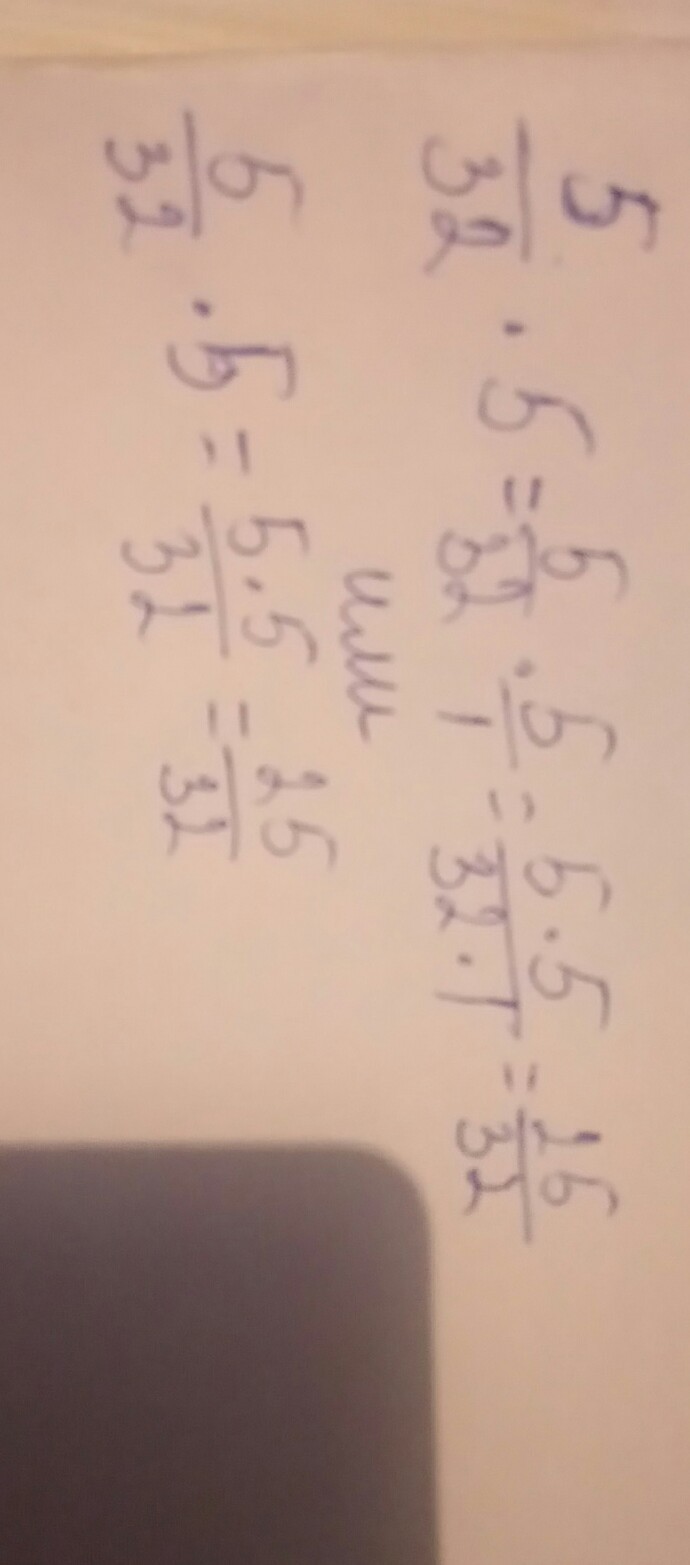 5/32 · 5 = 5/32 · 5/1 = 5·5/32·1 = 25/32
или
5/32 · 5 = 5·5/32 = 25/32